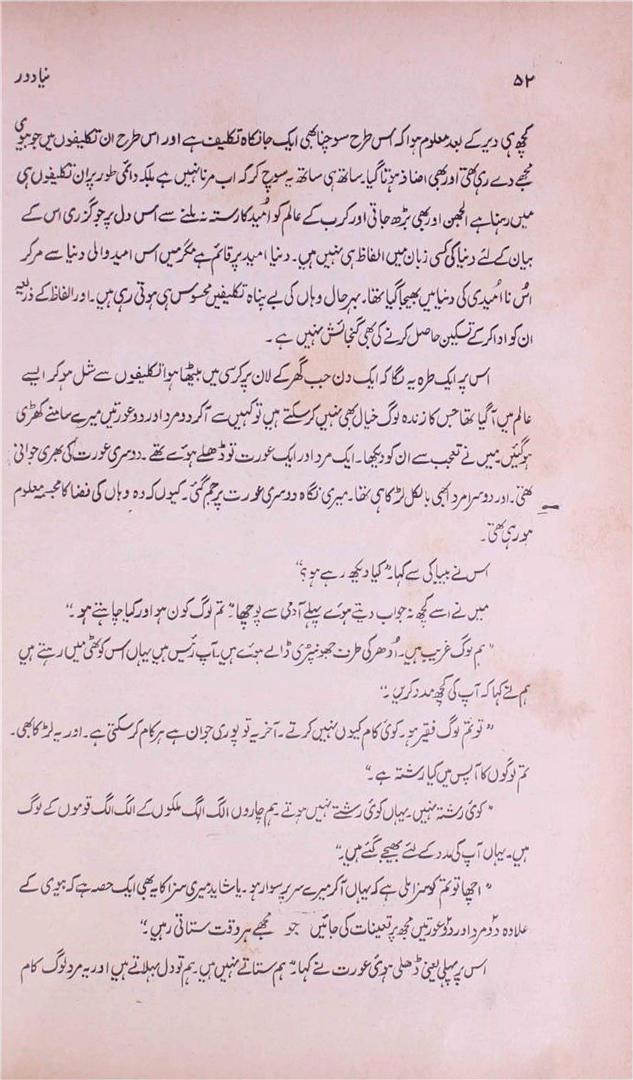 ۵۲ نیا دور
کچھ ہی دیر کے بعد معلوم ہوا کہ اس طرح سوچنا بھی ایک جانکاہ تکلیف ہے اور اس طرح ان تکلیفوں میں جو بیوی
مجھے دے رہی تھی اور بھی اضافہ ہوتا گیا۔ ساتھ ہی ساتھ یہ سوچ کر کہ اب مرنا نہیں ہے بلکہ دائمی طور پر ان تکلیفوں ہی
میں رہنا ہے الجھن اور بھی بڑھ جاتی اور کرب کے عالم کو اُمید کا رستہ نہ ملنے سے اس دل پر جو گزری اس کے
بیان کے لئے دنیا کی کسی زبان میں الفاظ ہی نہیں ہیں۔ دنیا امید پر قائم ہے مگر میں اس امید والی دنیا سے مر کر
اُس نا اُمیدی کی دنیا میں بھیجا گیا تھا۔ بہر حال وہاں کی بے پناہ تکلیفیں محسوس ہی ہوتی رہی ہیں۔ اور الفاظ کے ذریعہ
ان کو ادا کر کے تسکین حاصل کرنے کی بھی گنجائش نہیں ہے۔
اس پر ایک طرہ یہ لگا کہ ایک دن جب گھر کے لان پر کرسی میں بیٹھا ہوا تکلیفوں سے شل ہو کر ایسے
عالم میں آ گیا تھا جس کا زندہ لوگ خیال بھی نہیں کر سکتے ہیں تو کہیں سے آ کر دو مرد اور دو عورتیں میرے سامنے کھڑی
ہو گئیں۔ میں نے تعجب سے ان کو دیکھا۔ ایک مرد اور ایک عورت تو ڈھلے ہوئے تھے۔ دوسری عورت کی بھری جوانی
تھی۔ اور دوسرا مرد ابھی بالکل لڑکا ہی تھا۔ میری نگاہ دوسری عورت پر جم گئی۔ کیوں کہ وہ وہاں کی فضا کا مجسمہ معلوم
ہو رہی تھی۔
اس نے بیباکی سے کہا۔ "کیا دیکھ رہے ہو؟"
میں نے اسے کچھ نہ جواب دیتے ہوئے پہلے آدمی سے پوچھا۔ "تم لوگ کون ہو اور کیا چاہتے ہو۔"
"ہم لوگ غریب ہیں۔ اُدھر کی طرف جھونپڑی ڈالے ہوئے ہیں۔ آپ رئیس ہیں یہاں اس کوٹھی میں رہتے ہیں
ہم نے کہا کہ آپ کی کچھ مدد کریں۔"
"تو تم لوگ فقیر ہو۔ کوئی کام کیوں نہیں کرتے۔ آخر یہ تو پوری جوان ہے ہر کام کر سکتی ہے۔ اور یہ لڑکا بھی۔
تم لوگوں کا آپس میں کیا رشتہ ہے۔"
"کوئی رشتہ نہیں۔ یہاں کوئی رشتے نہیں ہوتے۔ ہم چاروں الگ الگ ملکوں کے الگ الگ قوموں کے لوگ
ہیں۔ یہاں آپ کی مدد کے لئے بھیجے گئے ہیں۔"
"اچھا تو تم کو سزا ملی ہے کہ یہاں آ کر میرے سر پر سوار ہو۔ یا شاید میری سزا کا یہ بھی ایک حصہ ہے کہ بیوی کے
علاوہ دو مرد اور دو عورتیں مجھ پر تعینات کی جائیں جو مجھے ہر وقت ستاتی رہیں۔"
اس پر پہلی یعنی ڈھلی ہوئی عورت نے کہا۔ "ہم ستاتے نہیں ہیں۔ ہم تو دل بہلاتے ہیں اور یہ مرد لوگ کام